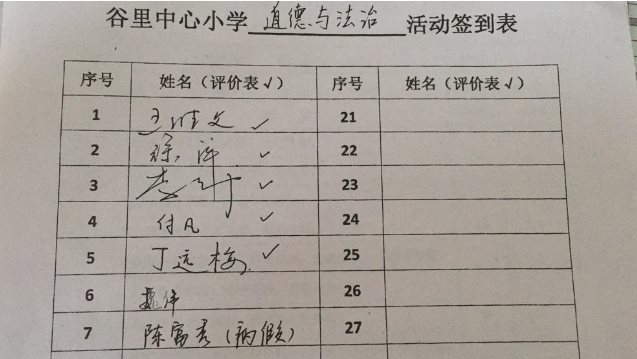 谷里中心小学 道德与法治 活动签到表
序号 姓名（评价表√） 序号 姓名（评价表√）
1 ✓ 21
2 徐 ✓ 22
3 ✓ 23
4 付凡 ✓ 24
5 丁远梅 ✓ 25
6 魏伟 26
7 陈富秀（病假） 27